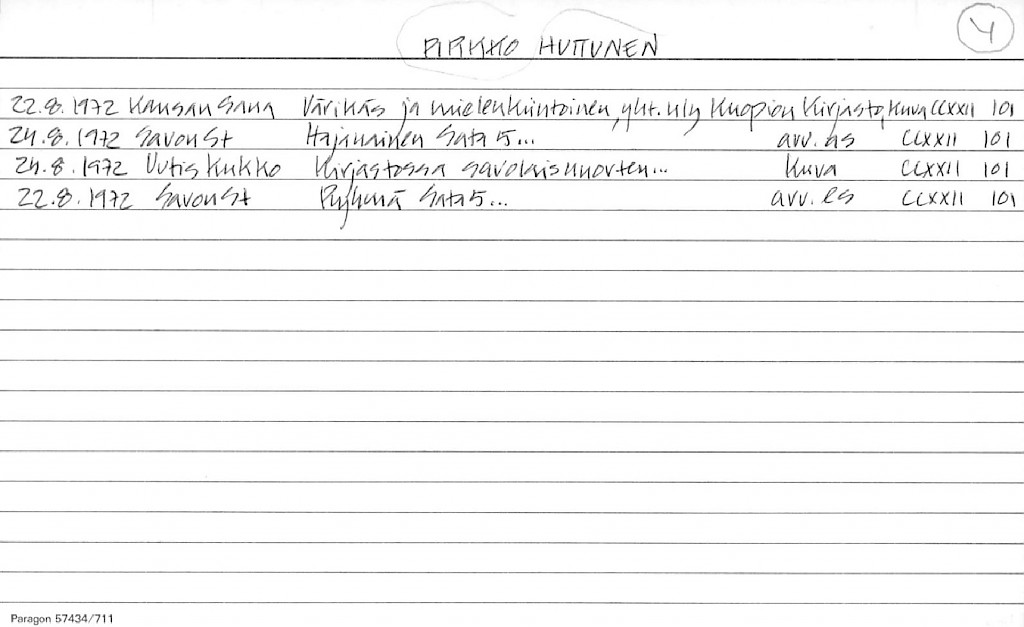 4
PIRKKO HUTTUNEN
22.8.1972 Kansan Sana Värikäs ja mielenkiintoinen, yht. näy Kuopion Kirjasto, kuva CCXXII 101
24.8.1972 Savon St Hajanainen Sata 5... arv. as CCXXII 101
24.8.1972 Uutis Kukko Kirjastossa savolaisnuorten... Kuva CCXXII 101
22.8.1972 Savon St Ryhmä Sata 5... arv. es CCXXII 101
Paragon 57434/711